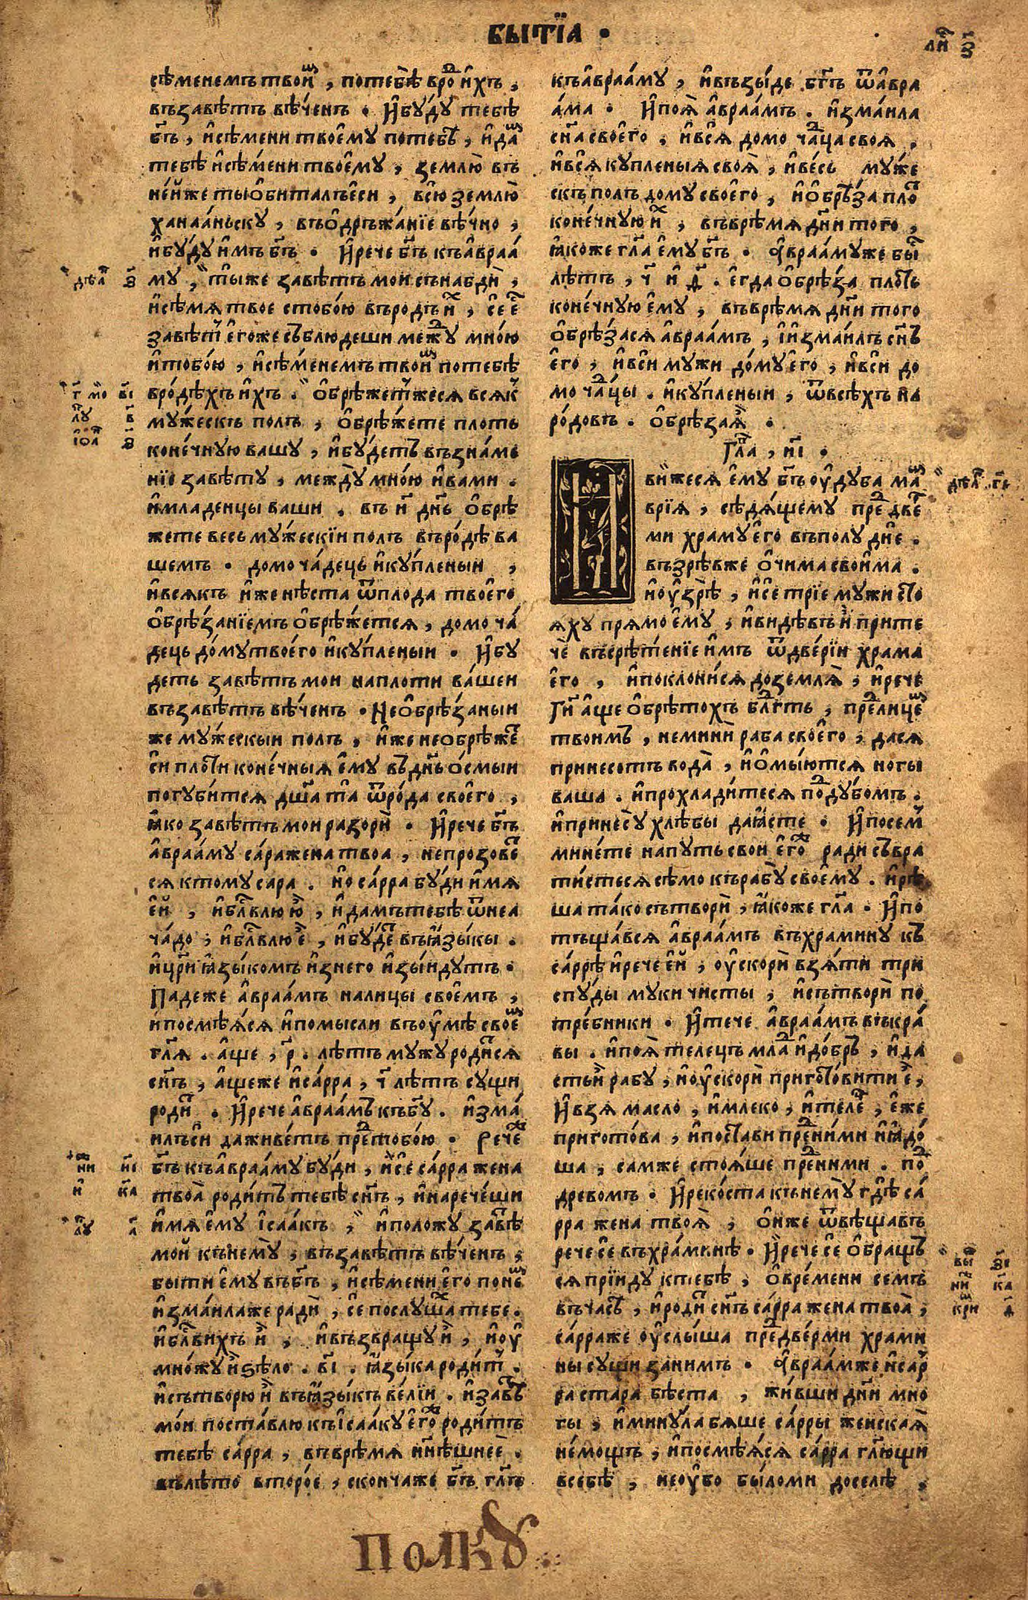 БЫТЇА ·
ли҃ з҃
сѣменемъ твои҃м , потебѣ вро̑ и҆хъ ,
въ завѣтъ вѣ́ченъ · И҆бу́ду тебѣ
бг҃ъ , и҆ сѣмени твоє҆му потебѣ , и҆да́м
тебѣ и҆ сѣ́мени твоє҆му , землю̀ въ
не́йже ты о҆битал єси , всю̀ землю̀
хана́аньску , въ ѡ҆дръжа́нїе вѣчно ,
и҆ бу́ду и҆мъ бг҃ъ · И҆рече бг҃ъ къ а҆враа́
му , ты́ же завѣтъ мои сънабди̑ ,
и҆ сѣмѧ твое стобо́ю въ родъ и҆х , се́ е҆с
завѣт е҆гоже съблюдеши межу мно́ю
и҆ тобо́ю , и҆ сѣменемъ твои̑м потебѣ
в ро́дѣхъ и҆хъ . О҆брѣжетжесѧ всѧк
му́жескъ полъ , о҆брѣ́жете плоть
коне́чную вашу , и҆бу́детъ въ зна́ме
нїе завѣту , между мно́ю и҆ вами .
и҆ младенцы ваши . въ и҃ дн҃ь о҆брѣ
жете весь му́жескїи полъ въ ро́дѣ ва
шемъ · домоча́децъ и҆ купленыи ,
и҆ всѧкъ и҆же нѣста ѿ плода твоего
о҆брѣ́занїемъ о҆брѣжетсѧ , домоча́
децъ до́му твоє́го и҆ ку́пленыи · И҆бу
деть завѣтъ мои на плоти ва́шеи
въ завѣтъ вѣ́ченъ · Не о҆брѣ́заныи
же му́жескыи полъ , и҆же не о҆брѣже́т
си пло́ти коне́чныѧ є҆му въ дн҃ь осмыи
погу́битсѧ дш҃а та ѿ ро́да своє҆го ,
ꙗ҆ко завѣтъ мои разори̑ · И҆рече бг҃ъ
а҆враа́му са́ра жена твоа , не прозове́т
сѧ ктому са́ра . но са́рра бу́ди и҆мѧ
є҆й , и҆ бл҃влю ю̑ , и҆ дамъ тебѣ ѿ неа
ча́до ; и҆ бл҃влю е̑ , и҆ бу́де въ ꙗ҆зы́кы .
и҆ цр҃и ꙗ҆зы́комъ и҆з него и҆зы́идутъ ·
Падеже а҆враамъ на лицы своє҆мъ ,
и҆ посмѣѧсѧ и҆ помысли въ оу҆мѣ своє҆м
гл҃ѧ . а҆ще , р҃ . лѣтъ мужу роди́сѧ
сн҃ъ , а҆щеже и҆ са́рра , ч҃ лѣтъ су́щи
роди̑т . И҆рече а҆враамъ къ бг҃у . и҆зма́
илъ си̑и да живе́тъ пре̑ тобо́ю · Рече́ же
бг҃ъ къ а҆враа́му бу́ди , и҆ се са́рра жена
твоа̀ роди́тъ тебѣ сн҃ъ , и҆ нарече́ши
и҆мѧ є҆му і҆саа́къ , и҆ положу завѣ
мой къ нему̀ , въ завѣтъ вѣ́ченъ ,
быти є҆му въ бг҃ъ , и҆ сѣмени є҆го по не̑м
и҆зма́ила же ради̑ , се́ послу́шах тебе .
и҆ бл҃вихъ и҆̀ , и҆ възвращу и҆̀ , и҆ оу҆
множу и҆̀ ѕѣло . в҃і . ꙗ҆зыка роди́т .
и҆ сътворю и҆̀ въ ꙗ҆зы́къ ве́лїи . и҆ завѣт
мои поста́влю къ і҆саа́ку є҆го̑ж родитъ
тебѣ са́рра , въ врѣмѧ нн҃ѣшнее .
въ лѣто второ́е , сконча́же бг҃ъ гл҃ѧ
къ а҆враа́му , и҆ възы́де бг҃ъ ѿ а҆вра
а́ма · И҆поѧ̀ а҆враамъ . и҆зма́ила
сн҃а своє҆го , и҆ всѧ̀ домоча̑ца своѧ ,
и҆ всѧ̀ купленыѧ своѧ̀ , и҆ ве́сь му́же
скъ полъ дому своє҆го , и҆ о҆брѣ́за пло̑т
коне́чную и҆х , въ врѣмѧ дн҃и того ,
ꙗ҆коже гл҃а є҆му бг҃ъ · А҆враамуже бы̑
лѣтъ , ч҃ и҆ д҃ . егда о҆брѣ́за плоть
коне́чную є҆му , въ врѣмѧ дн҃и того
о҆брѣ́засѧ а҆враамъ , і҆ и҆зма́илъ сн҃ъ
є҆го ; и҆ вси мужи до́му є҆го , и҆ вси до
моча̑цы . и҆ ку́пленыи , ѿ всѣхъ на
ро́довъ . о҆брѣ́заѧ̀ .
Гл҃а , и҃і .
И҆
ви́жесѧ є҆му бг҃ъ оу҆ ду́ба ма̑м
врїѧ , сѣдѧ́щему пре̑ две́
ми храму є҆го въ полу дн҃е .
възрѣвже о҆чима свои́ма .
и҆ оу҆зрѣ̀ , и҆ се́ трїе мужи сто
ѧ́ху прѧмо є҆му ; и҆ видѣвъ и҆̀ прите
чѐ въ срѣтенїе и҆мъ ѿ две́рїи храма
є҆го , и҆ поклони́сѧ до землѧ̀ ; и҆ рече
Ги҃ а҆ще о҆брѣтохъ бл҃гть , пре̑ лице̑м
твоимъ , не мини̑ раба своє҆го ; да сѧ
принесетъ вода̀ , и҆ о҆мы́ютсѧ но́гы
ваша . и҆ прохлади́тесѧ по̑ ду́бомъ .
и҆ принесу хлѣ́бы да ꙗ҆сте · И҆ посем
мине́те на путь свои є҆го̑ж ради съвра
ти́стесѧ сѣ́мо къ рабу своє҆му . и҆ рѣ
ша та́ко сътвори̑ , ꙗ҆коже гл҃а . И҆ по
тъща́всѧ а҆враамъ въ храмину къ
са́ррѣ и҆ рече є҆й ; оу҆скори̑ взѧ́ти три
спу́ды муки чисты ; и҆ сътвори̑ по
тре́бники · И҆ тече а҆враамъ въ кра́
вы . и҆ поѧ̀ телецъ мла̑ и҆ до́бръ , и҆ да
стъ и҆̀ рабу , и҆ оу҆скори̑ пригото́вити є҆̀ ,
И҆ взѧ масло , и҆ млеко , и҆ теле̑ц , є҆же
пригото́ва , и҆ поста́ви пре̑ ни́ми и҆ ꙗ҆до́
ша , са́мже стоѧ́ше пре̑ ними . по̑
древомъ · И҆ реко́ста къ нему̀ гдѣ са́
рра жена твоѧ̀ ; о҆нже ѿвѣща́въ
рече се́ въ хра́минѣ . И҆рече се́ о҆бращъ
сѧ прїи́ду к тебѣ , о҆ вре́мени семъ
въ ча́съ , и҆ роди̑т сн҃ъ са́рра жена твоа̀ ;
са́рраже оу҆слы́ша пре̑ две́рми храми
ны су́щи за нимъ · А҆враамже и҆ са́р
ра стара бѣ́ста , жи́вши дн҃и мно
гы ; и҆ мину́ла бѧше са́рры женскаѧ
не́мощъ ; и҆ посмѣѧсѧ са́рра гл҃ющи
в себѣ , не оу҆бо бы́ло ми доселѣ ,
Полкꙋ